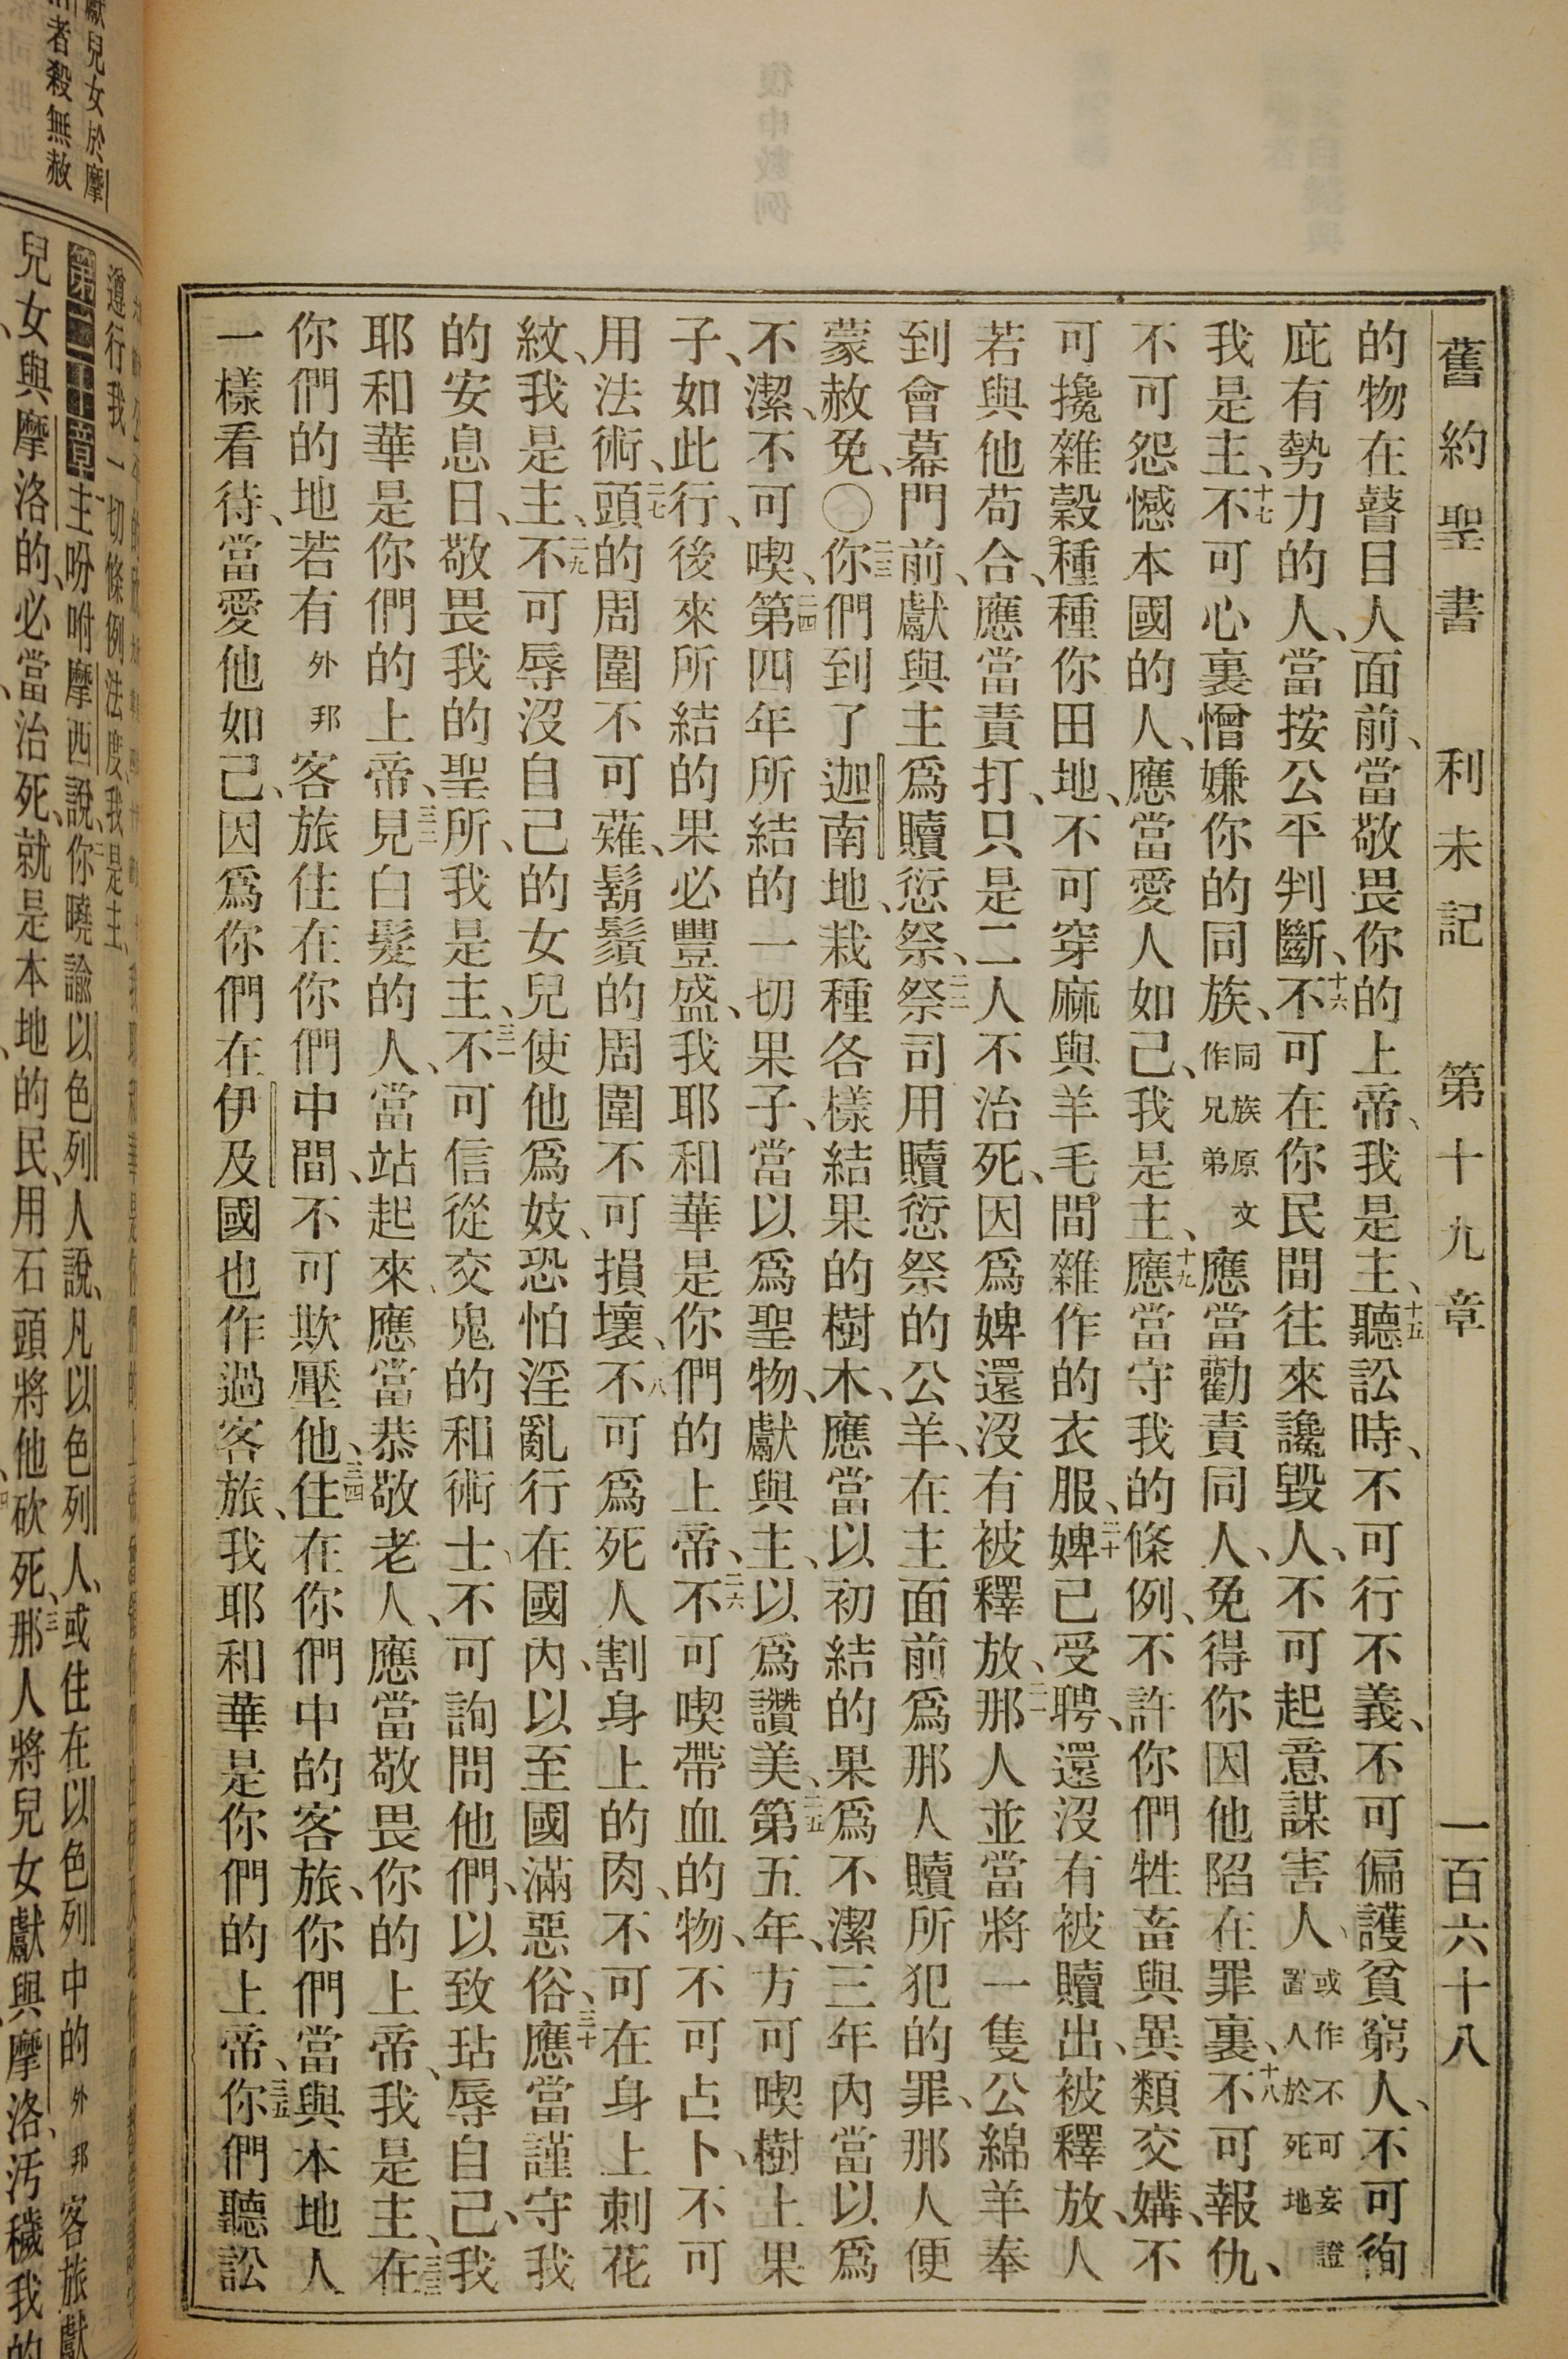 舊約聖書 利未記 第十九章 一百六十八
的物在瞽目人面前、當敬畏你的上帝、我是主、十五聽訟時、不可行不義、不可偏護貧窮人、不可徇
庇有勢力的人、當按公平判斷、十六不可在你民間往來讒毀人、不可起意謀害人、或作不可妄證置人於死地
我是主、十七不可心裏憎嫌你的同族、同族原文作兄弟應當勸責同人、免得你因他陷在罪裏、十八不可報仇、
不可怨憾本國的人、應當愛人如己、我是主、十九應當守我的條例、不許你們牲畜與異類交媾、不
可攙雜穀種種你田地、不可穿麻與羊毛間雜作的衣服、二十婢已受聘、還沒有被贖出、被釋放、人
若與他苟合、應當責打、只是二人不治死、因爲婢還沒有被釋放、二一那人並當將一隻公綿羊奉
到會幕門前、獻與主爲贖愆祭、二二祭司用贖愆祭的公羊、在主面前爲那人贖所犯的罪、那人便
蒙赦免、〇二三你們到了迦南地、栽種各樣結果的樹木、應當以初結的果爲不潔、三年內當以爲
不潔、不可喫、二四第四年所結的一切果子、當以爲聖物、獻與主、以爲讚美、二五第五年、方可喫樹上果
子、如此行、後來所結的果必豐盛、我耶和華是你們的上帝、二六不可喫帶血的物、不可占卜、不可
用法術、二七頭的周圍不可薙、鬍鬚的周圍不可損壞、二八不可爲死人割身上的肉、不可在身上刺花
紋、我是主、二九不可辱沒自己的女兒使他爲妓、恐怕淫亂行在國內、以至國滿惡俗、三十應當謹守我
的安息日、敬畏我的聖所、我是主、三一不可信從交鬼的和術士、不可詢問他們、以致玷辱自己、我
耶和華是你們的上帝、三二見白髮的人、當站起來、應當恭敬老人、應當敬畏你的上帝、我是主、三三在
你們的地若有外邦客旅住在你們中間、不可欺壓他、三四住在你們中的客旅、你們當與本地人
一樣看待、當愛他如己、因爲你們在伊及國也作過客旅、我耶和華是你們的上帝、三五你們聽訟
獻兒女於摩
者殺無赦
遵行我一切條例法度、我是主、
第二十章主吩咐摩西說、二你曉諭以色列人說、凡以色列人、或住在以色列中的外邦客旅獻
兒女與摩洛的、必當治死、就是本地的民、用石頭將他砍死、三那人將兒女獻與摩洛、汚穢我的